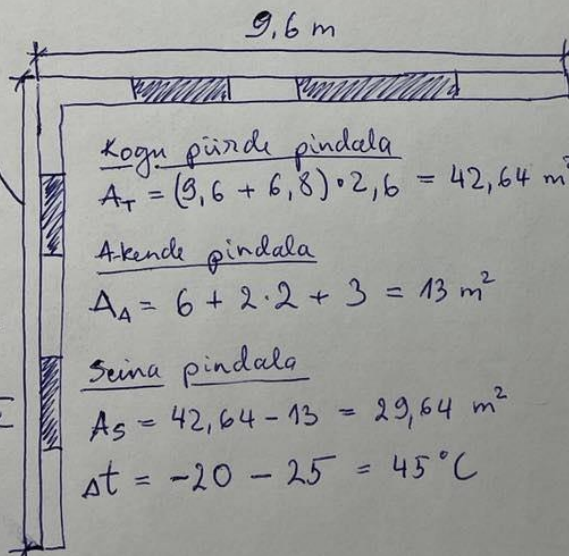 9,6 m
Kogu piirde pindala
A_T = (9,6 + 6,8)·2,6 = 42,64 m²
Akende pindala
A_A = 6 + 2·2 + 3 = 13 m²
Seina pindala
A_S = 42,64 - 13 = 29,64 m²
Δt = -20 - 25 = 45°C